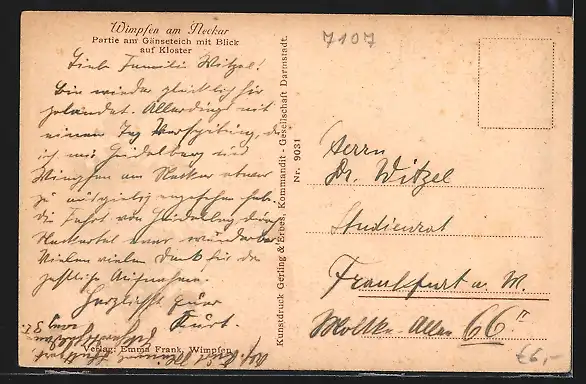 Wimpfen am Neckar
Partie am Gänseteich mit Blick
auf Kloster
7107
Liebe Familie Witzel!
Bin wieder glücklich hier
gelandet. Allerdings mit
einem Tag Verspätung, da
ich mir Heidelberg und
Wimpfen am Neckar etwas
zu ausgiebig angesehen hab.
Die Fahrt von Heidelberg durch
Neckartal war wunderbar
Vielen vielen Dank für die
herzliche Aufnahme.
Herzlichst Euer
Kurt.
Verlag: Emma Frank, Wimpfen
Kunstdruck Gerling & Erbes, Kommandit-Gesellschaft Darmstadt.
Nr. 9031
Herrn
Dr. Witzel
Studienrat
Frankfurt a. M.
Moltke-Allee 66 II
€6,-